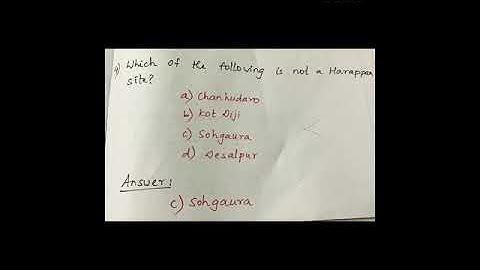 9) Which of the following is not a Harappan
site?
a) Chanhudaro
b) Kot Diji
c) Sohgaura
d) Desalpur
Answer:
c) Sohgaura